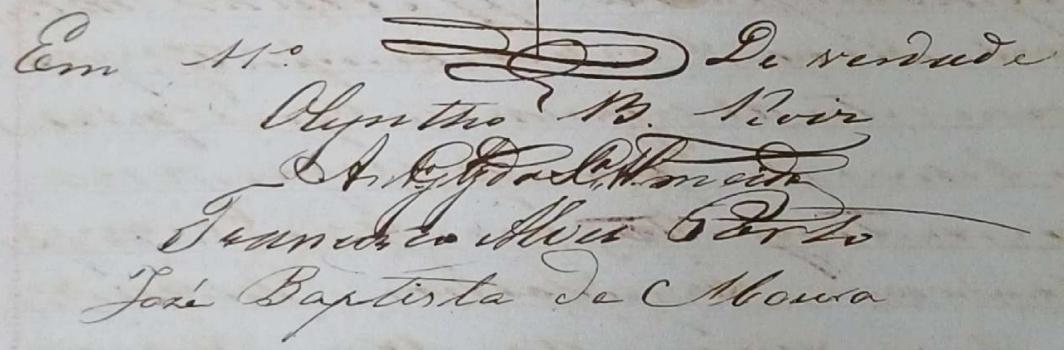 Em tt.º De verdade
Olyntho B.
Almeida
Francisco Alves Porto
José Baptista de Moura